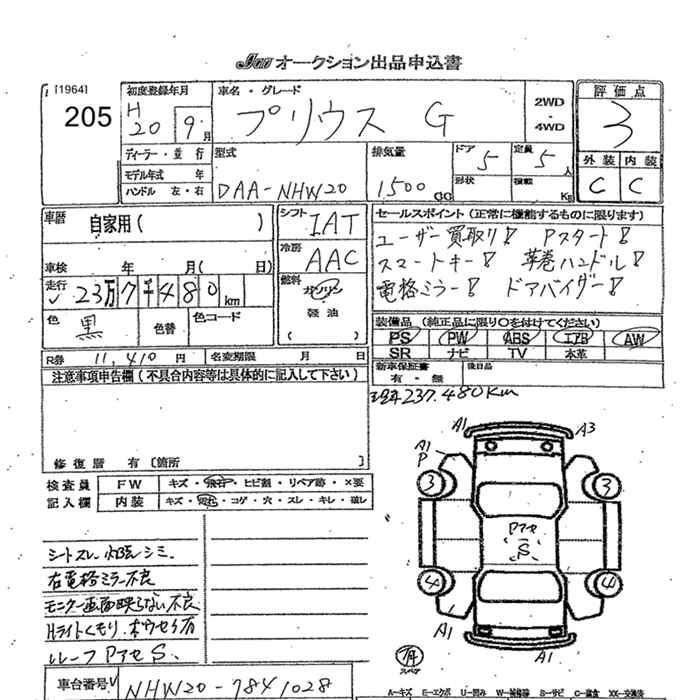 JAA オークション出品申込書
[1964]
205
初度登録年月
H 20 9 月
車名・グレード
プリウス G
2WD
・
4WD
評価点
3
外装 内装
C C
ディーラー・並行
モデル年式 年
ハンドル 左・右
型式
DAA-NHW20
排気量
1500 CC
ドア 5
形状
定員 5 人
積載 Kg
車歴 自家用( )
車検 年 月( 日)
走行 23万7千480km
色 黒 色替 色コード
シフト IAT
冷房 AAC
燃料 ガソリン
軽油
( )
セールスポイント(正常に機能するものに限ります)
ユーザー買取り! Pスタート!
スマートキー! 革巻ハンドル!
電格ミラー! ドアバイザー!
装備品(純正品に限り○を付けてください)
PS PW ABS エアB AW
SR ナビ TV 本革
新車保証書
有・無
後日品
R券 11,410 円 名変期限 月 日
237.480Km
注意事項申告欄(不具合内容等は具体的に記入して下さい)
修復歴 有 [箇所 ]
検査員
記入欄
FW キズ・飛石・ヒビ割・リペア跡・×要
内装 キズ・汚れ・コゲ・穴・スレ・キレ・破レ
シートスレ、シミ、
右電格ミラー不良
モニター画面映らない不良
Hライトくもり、
ルーフPアセS、
A1 A3
A1
P
3 3
Pアセ
S
4 4
A1 A1
A1
スペア
車台番号 NHW20-7841028
A-キズ E-エクボ U-凹み W-補修跡 S-サビ C-腐食 XX-交換済